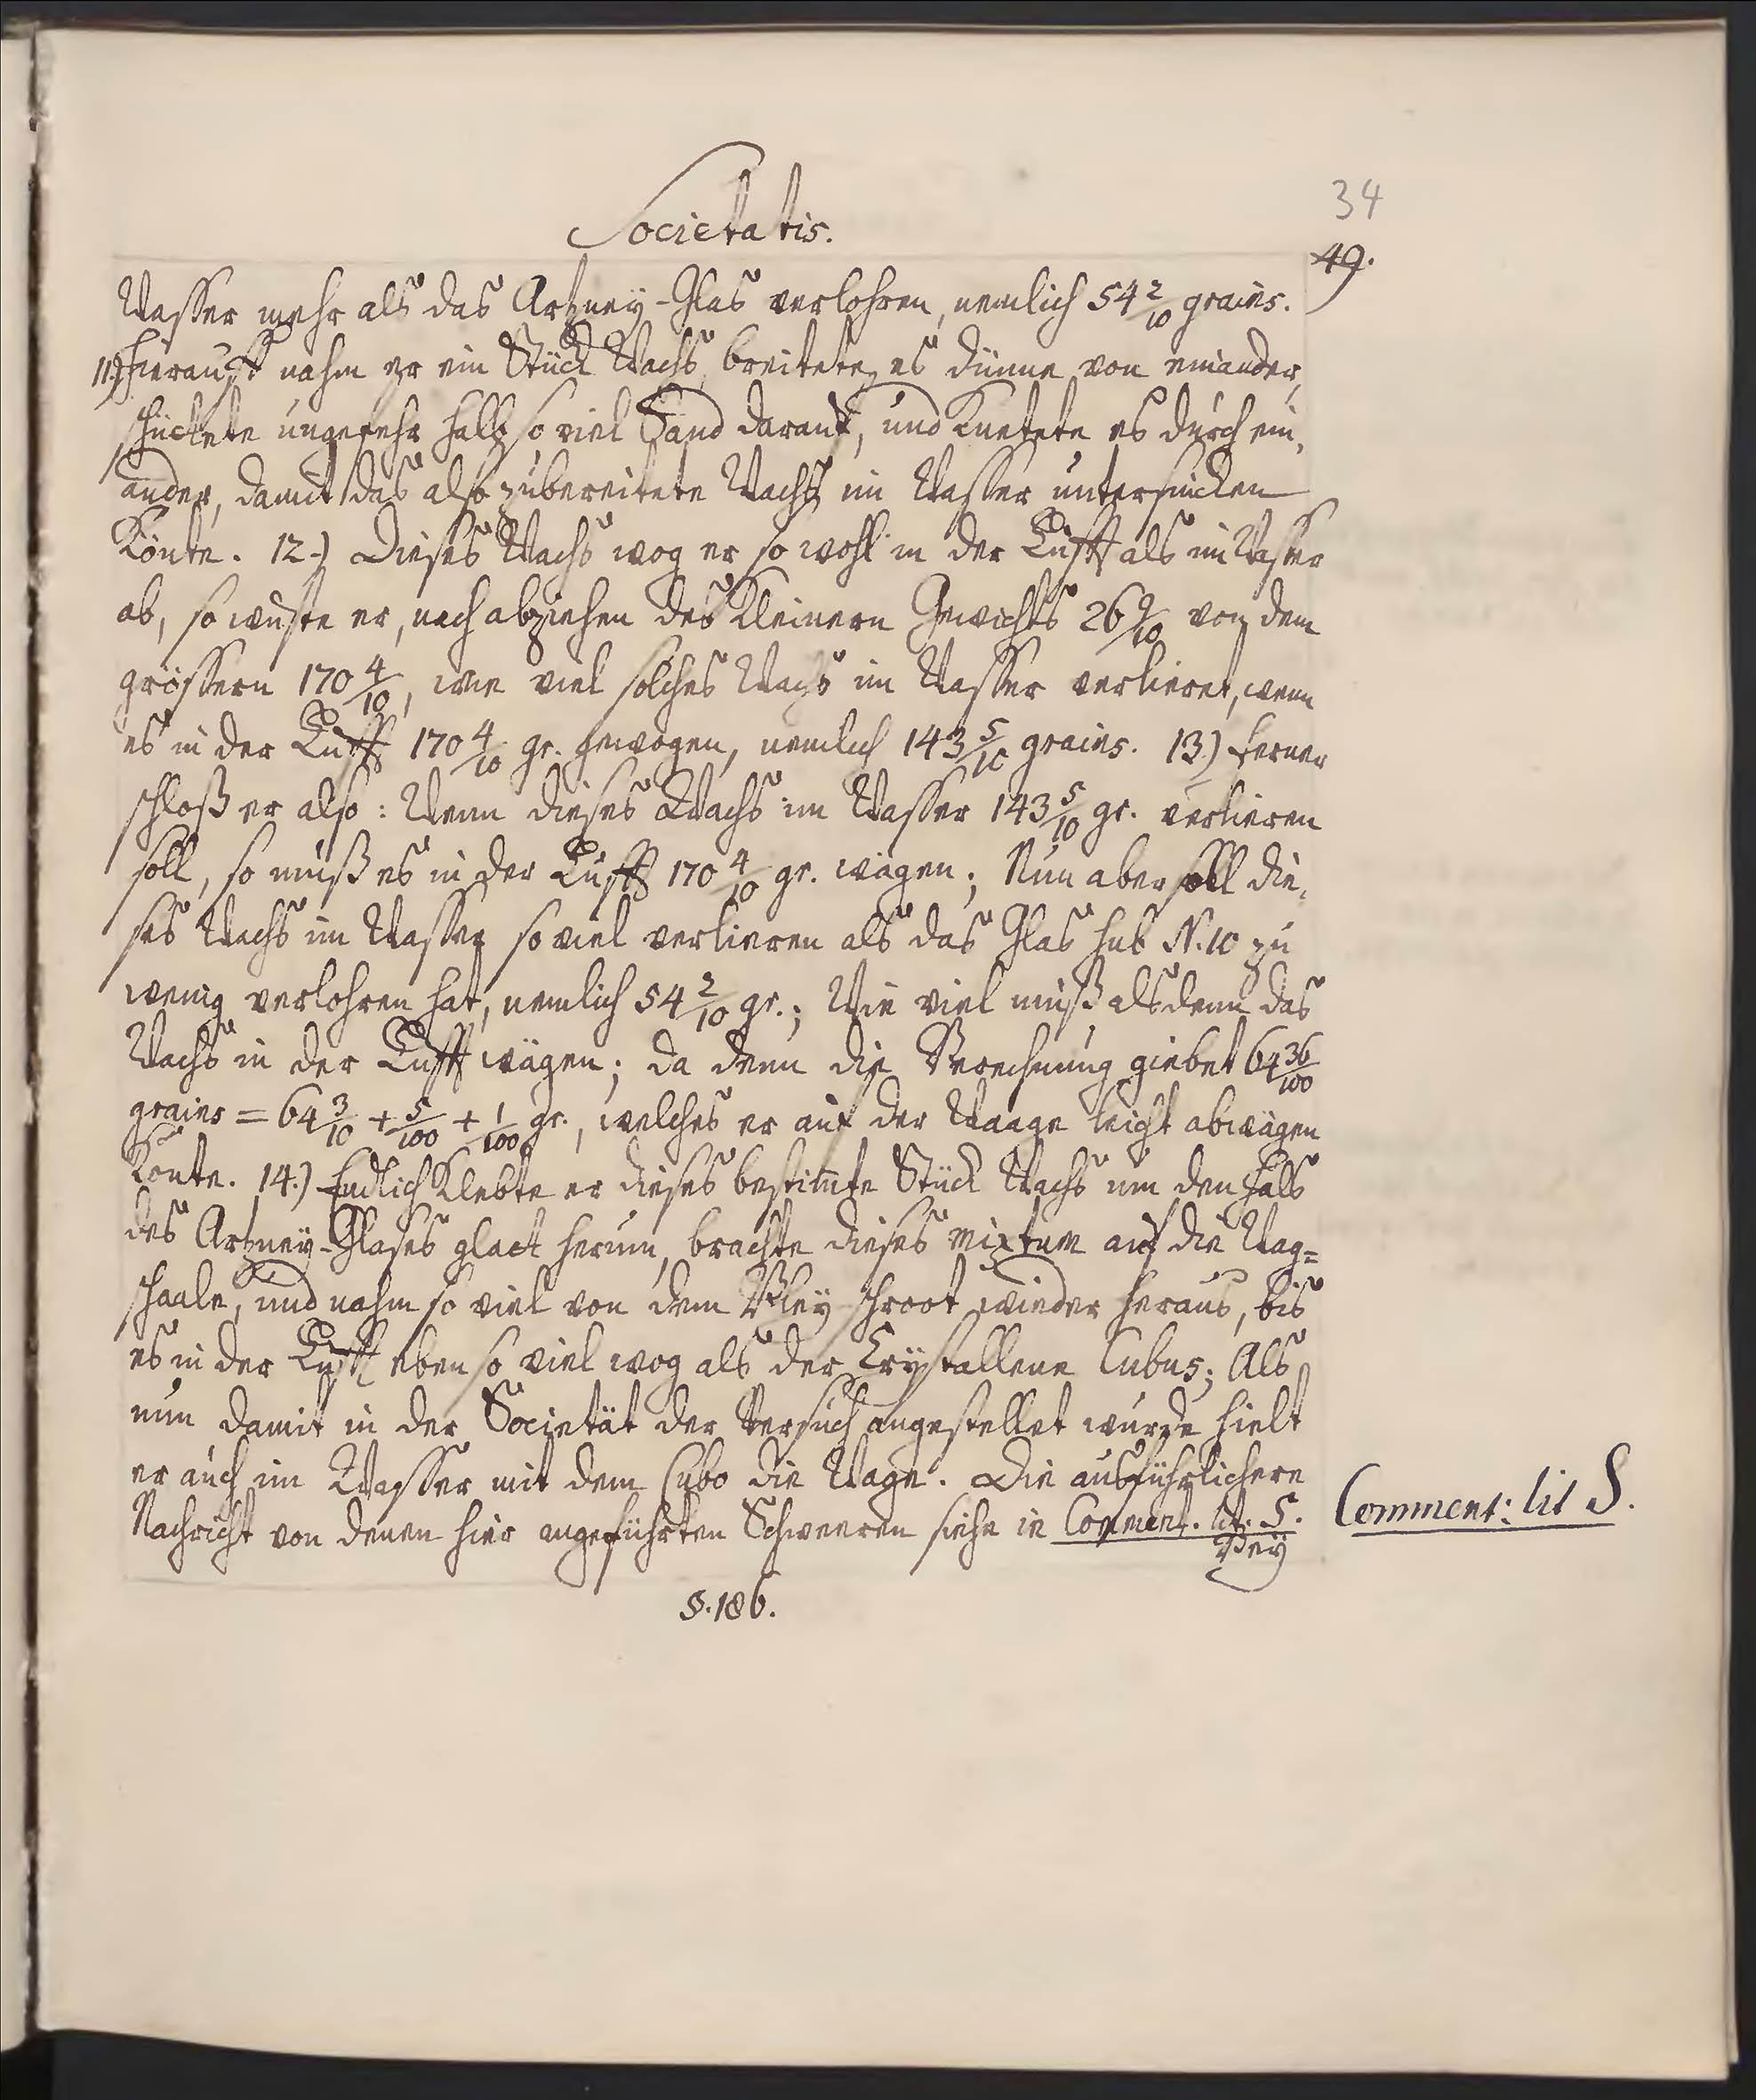 34
Societatis.
49.
Wasser mehr als das Artzney-Glas verlohren, nemlich 54 2/10 grains.
11.) Hierauff nahm er ein Stück Wachs, breitete es dünne von einander,
schüttete ungefehr halb so viel Sand darauf, und Knetete es durch ein-
ander, damit das also zubereitete Wachs im Wasser untersincken
Könte. 12.) Dieses Wachs wog er so wohl in der Lufft als im Wasser
ab, so wuste er, nach abziehen des Kleinern Gewichts 26 9/10 von dem
grössern 170 4/10, wie viel solches Wachs im Wasser verlieret, wenn
es in der Lufft 170 4/10 gr. gewogen, nemlich 143 5/10 grains. 13.) Ferner
schloß er also: Wenn dieses Wachs im Wasser 143 5/10 gr. verlieren
soll, so muß es in der Lufft 170 4/10 gr. wägen; Nun aber soll die-
ses Wachs im Wasser so viel verlieren als das Glas sub N. 10 zu
wenig verlohren hat, nemlich 54 2/10 gr.; Wie viel muß alsdenn das
Wachs in der Lufft wägen; da denn die Berechnung giebet 64 36/100
grains = 64 3/10 + 5/100 + 1/100 gr., welches er auf der Waage leicht abwägen
Konte. 14.) Endlich Klebte er dieses bestim̅te Stück Wachs um den Hals
des Artzney-Glases glatt herum, brachte dieses mixtum auf die Wag=
schaale, und nahm so viel von dem Bley schroot wieder heraus, bis
es in der Lufft eben so viel wog als der Crystallene Cubus; Als
nun damit in der Societät der Versuch angestellet wurde hielt
er auch im Wasser mit dem Cubo die Wage. Die ausführlichere
Nachricht von denen hier angeführten Schweeren siehe in Comment. lit. S.
Comment: lit S.
Bey
§. 186.